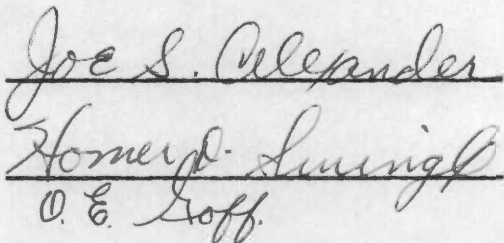 Joe S. Alexander
Homer D. Swingle
O. E. Goff.